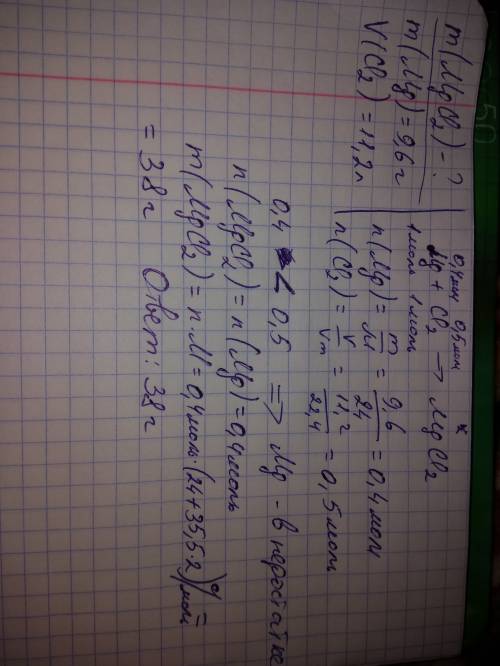 m(MgCl₂) - ?
m(Mg) = 9,6 г
V(Cl₂) = 11,2 л
0,4 моль 0,5 моль x
Mg + Cl₂ → MgCl₂
1 моль 1 моль
n(Mg) = m/M = 9,6/24 = 0,4 моль
n(Cl₂) = V/Vm = 11,2/22,4 = 0,5 моль
0,4 < 0,5 => Mg - в недостатке
n(MgCl₂) = n(Mg) = 0,4 моль
m(MgCl₂) = n·M = 0,4 моль (24+35,5·2) г/моль =
= 38 г Ответ: 38 г